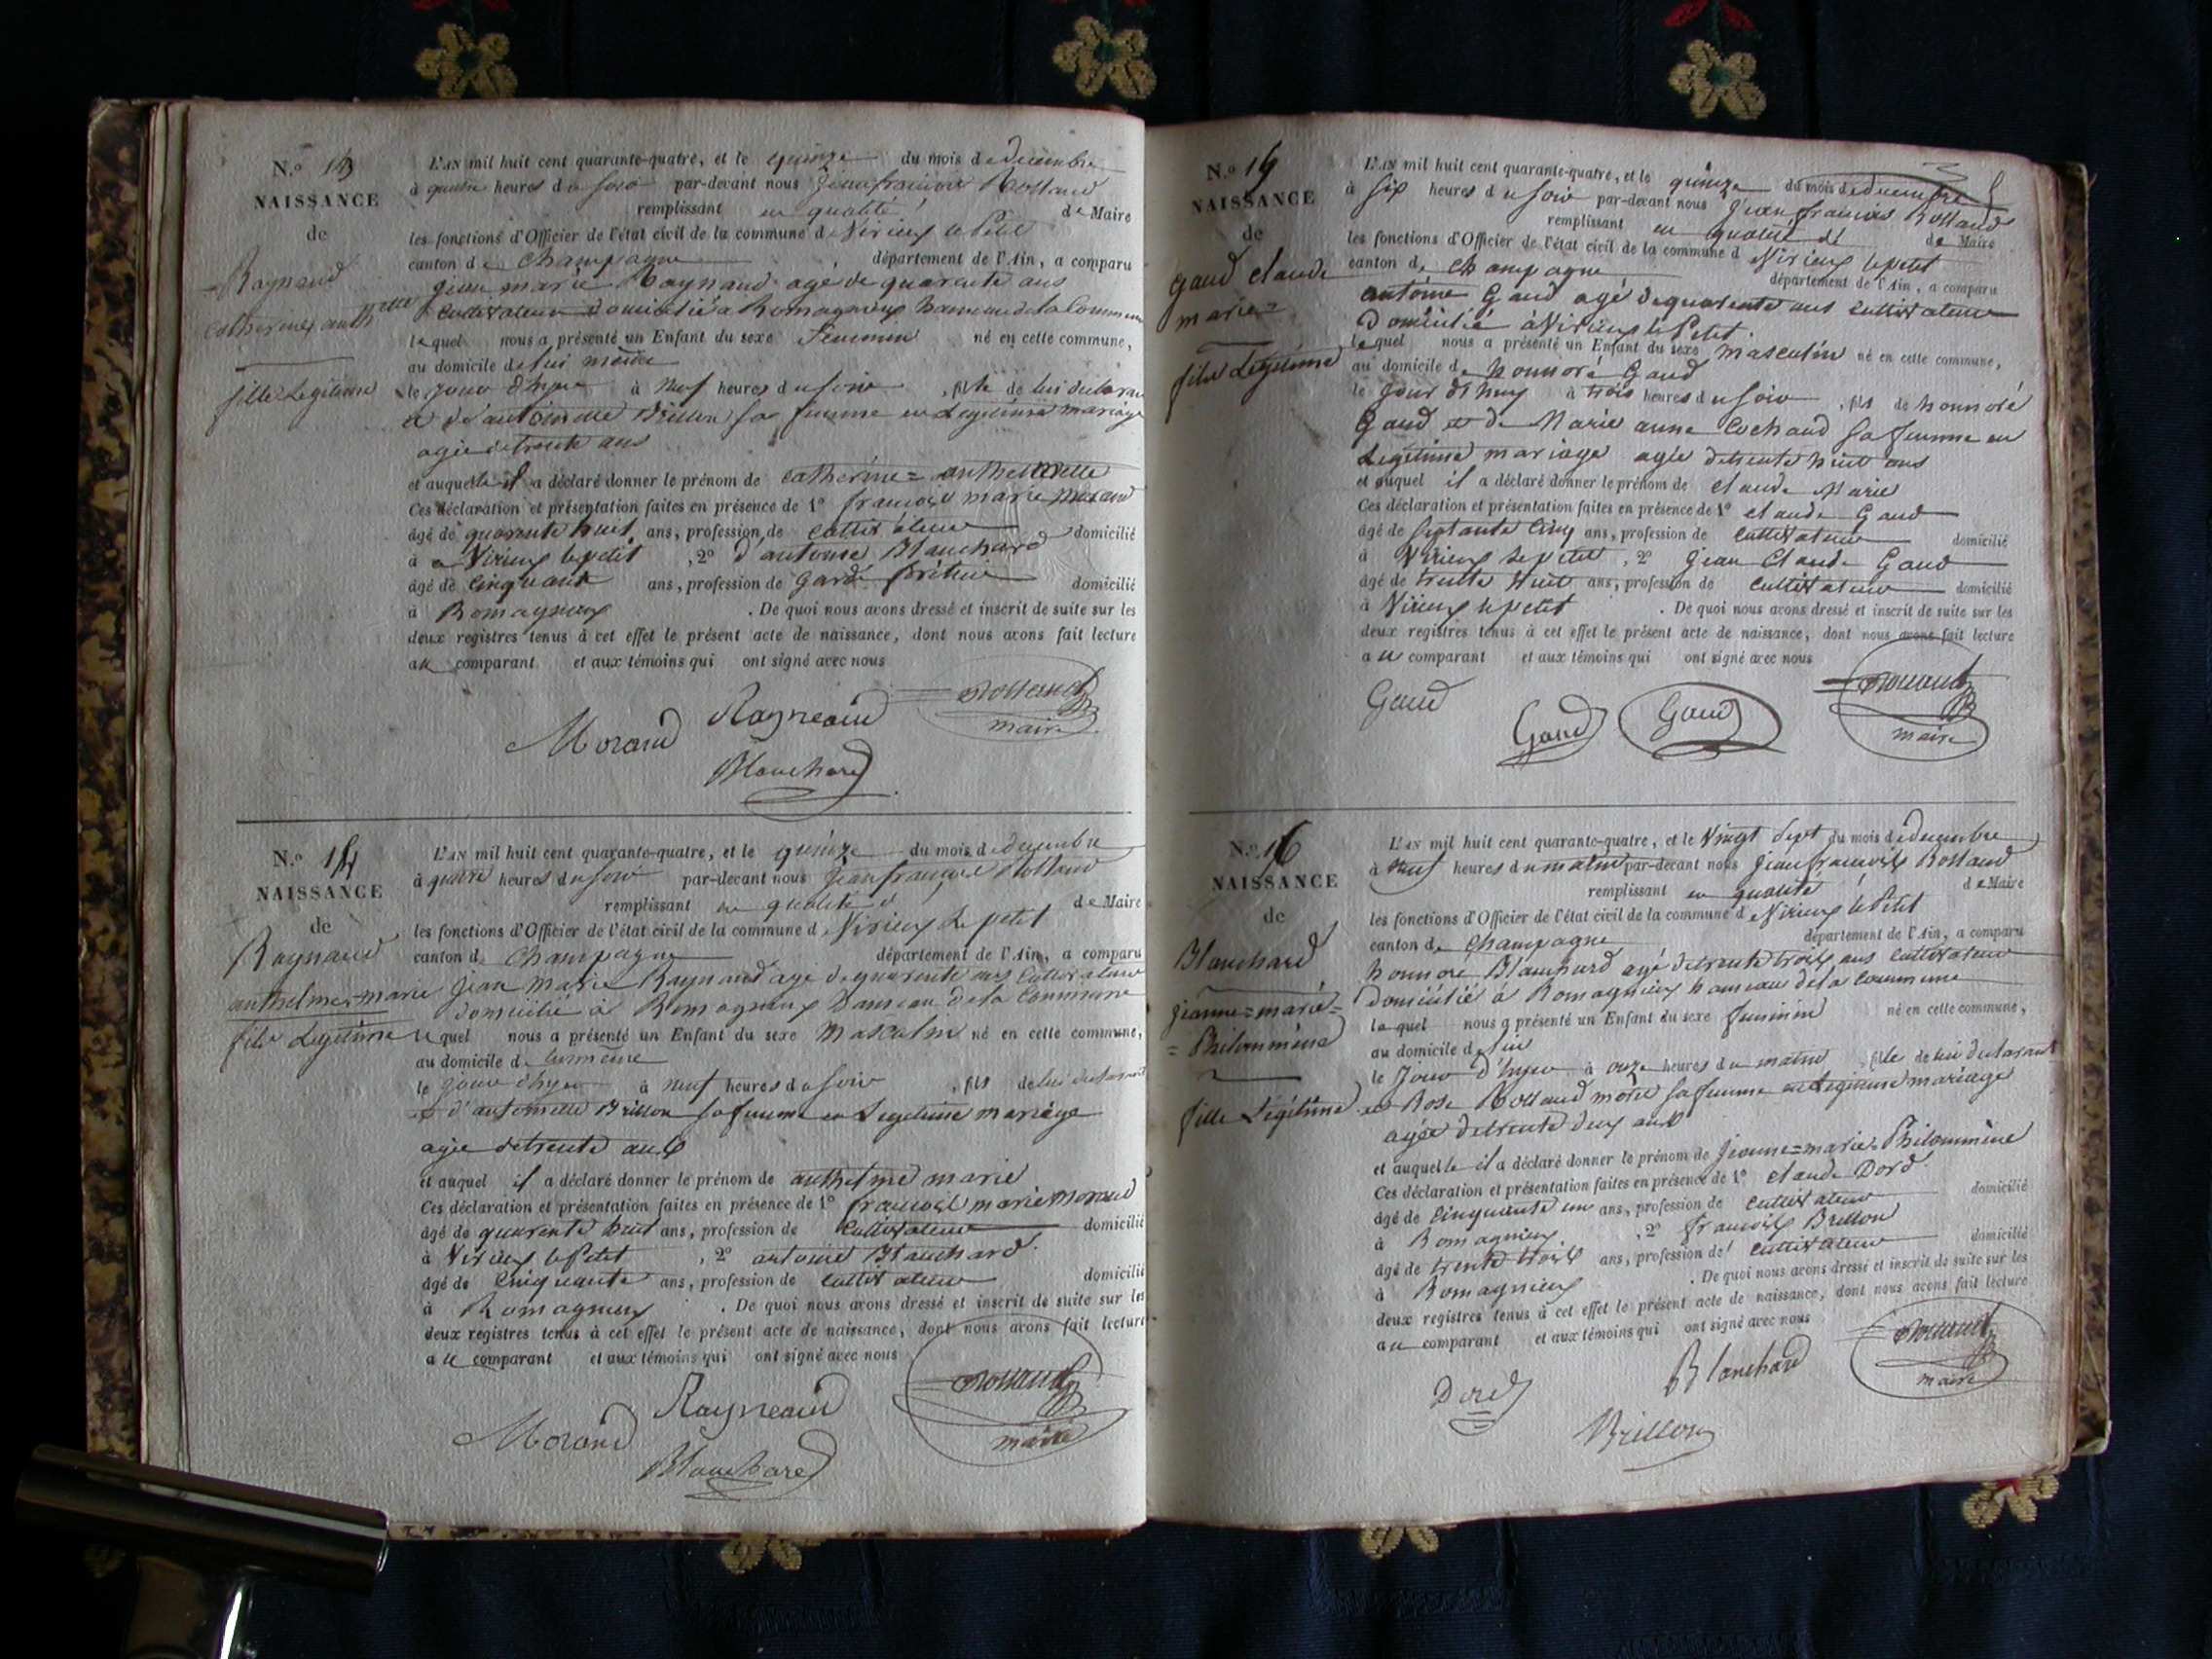 N.º 13
NAISSANCE
de
Raynaud
Catherine = anth.elle
fille Légitime
L'AN mil huit cent quarante-quatre, et le quinze du mois de decembre
à quatre heures du soir par-devant nous Jean françois Rolland
remplissant en qualité de Maire
les fonctions d'Officier de l'état civil de la commune de Virieux le Petit
canton de Champagne, département de l'Ain, a comparu
Jean marie Raynaud agé de quarente ans
Cultivateur domicilié à Romagnieux hameau de la Commune
lequel nous a présenté un Enfant du sexe Feminin né en cette commune,
au domicile de lui même
le jour d'hyer à neuf heures du soir, fille de lui declarant
et d'antoinette Brillon sa femme en Legitime mariage
agée de trente ans
et auquelle il a déclaré donner le prénom de Catherine = anthelmette
Ces déclaration et présentation faites en présence de 1º françois marie Morand
âgé de quarente huit ans, profession de Cultivateur domicilié
à a Virieux le petit, 2º d'antoine Blanchard
âgé de Cinquante ans, profession de Garde forêtier domicilié
à Romagnieux. De quoi nous avons dressé et inscrit de suite sur les
deux registres tenus à cet effet le présent acte de naissance, dont nous avons fait lecture
au comparant et aux témoins qui ont signé avec nous
Morand Rayneaud Rolland
maire
Blanchard
N.º 14
NAISSANCE
de
Raynaud
anthelme=marie
fils Legitime
L'AN mil huit cent quarante-quatre, et le quinze du mois de decembre
à quatre heures du soir par-devant nous Jean françois Rolland
remplissant en qualité d de Maire
les fonctions d'Officier de l'état civil de la commune d Virieux Le petit
canton de Champagne département de l'Ain, a comparu
Jean Marie Raynaud agé de quarente ans Cultivateur
domicilié à Romagnieux hameau de la Commune
lequel nous a présenté un Enfant du sexe Masculin né en cette commune,
au domicile de lui même
le jour d'hyer à neuf heures du soir, fils de lui declarant
et d'antoinette Brillon sa femme en Legitime mariage
agée de trente ans
et auquel il a déclaré donner le prénom de anthelme marie
Ces déclaration et présentation faites en présence de 1º françois marie Morand
âgé de quarente huit ans, profession de Cultivateur domicilié
à Virieux le Petit, 2º antoine Blanchard
âgé de Cinquante ans, profession de Cultivateur domicilié
à Romagnieux. De quoi nous avons dressé et inscrit de suite sur les
deux registres tenus à cet effet le présent acte de naissance, dont nous avons fait lecture
au comparant et aux témoins qui ont signé avec nous
Morand Rayneaud Rolland
maire
Blanchard
N.º 15
NAISSANCE
de
Gaud Claude
marie =
fils Légitime
L'AN mil huit cent quarante-quatre, et le quinze du mois de decembre
à six heures du soir par-devant nous Jean françois Rolland
remplissant en qualité de de Maire
les fonctions d'Officier de l'état civil de la commune d Virieux le petit
canton de Champagne département de l'Ain, a comparu
antoine Gaud agé de quarente ans Cultivateur
Domicilié à Virieux le Petit.
lequel nous a présenté un Enfant du sexe masculin né en cette commune,
au domicile de honnoré Gaud
le jour d'huy à trois heures du soir, fils de honnoré
Gaud et de Marie anne Cochand sa femme en
Legitime mariage agée de trente huit ans
et auquel il a déclaré donner le prénom de Claude Marie
Ces déclaration et présentation faites en présence de 1º Claude Gaud
âgé de septante Cinq ans, profession de Cultivateur domicilié
à Virieux le petit, 2º Jean Claude Gaud
âgé de trente Huit ans, profession de Cultivateur domicilié
à Virieux le petit. De quoi nous avons dressé et inscrit de suite sur les
deux registres tenus à cet effet le présent acte de naissance, dont nous avons fait lecture
au comparant et aux témoins qui ont signé avec nous
Gaud Gaud Gaud Rolland
maire
N.º 16
NAISSANCE
de
Blanchard
Jeanne=marie=
=Philommène
fille Légitime
L'AN mil huit cent quarante-quatre, et le Vingt Sept du mois de decembre
à neuf heures du matin par-devant nous Jean françois Rolland
remplissant en qualité de Maire
les fonctions d'Officier de l'état civil de la commune d Virieux le Petit
canton de Champagne département de l'Ain, a comparu
honnoré Blanchard agé de trente trois ans Cultivateur
Domicilié à Romagnieux hameau de la Commune
lequel nous a présenté un Enfant du sexe feminin né en cette commune,
au domicile de lui
le Jour d'hyer à onze heures du matin, fille de lui declarant
et Rose Rolland sa femme en Legitime mariage
agée de trente deux ans
et auquelle il a déclaré donner le prénom de Jeanne=marie=Philommène
Ces déclaration et présentation faites en présence de 1º Claude Dord
âgé de Cinquante un ans, profession de Cultivateur domicilié
à Romagnieux, 2º françois Brillon
âgé de trente trois ans, profession de Cultivateur domicilié
à Romagnieux. De quoi nous avons dressé et inscrit de suite sur les
deux registres tenus à cet effet le présent acte de naissance, dont nous avons fait lecture
au comparant et aux témoins qui ont signé avec nous
Dord Blanchard Rolland
maire
Brillon